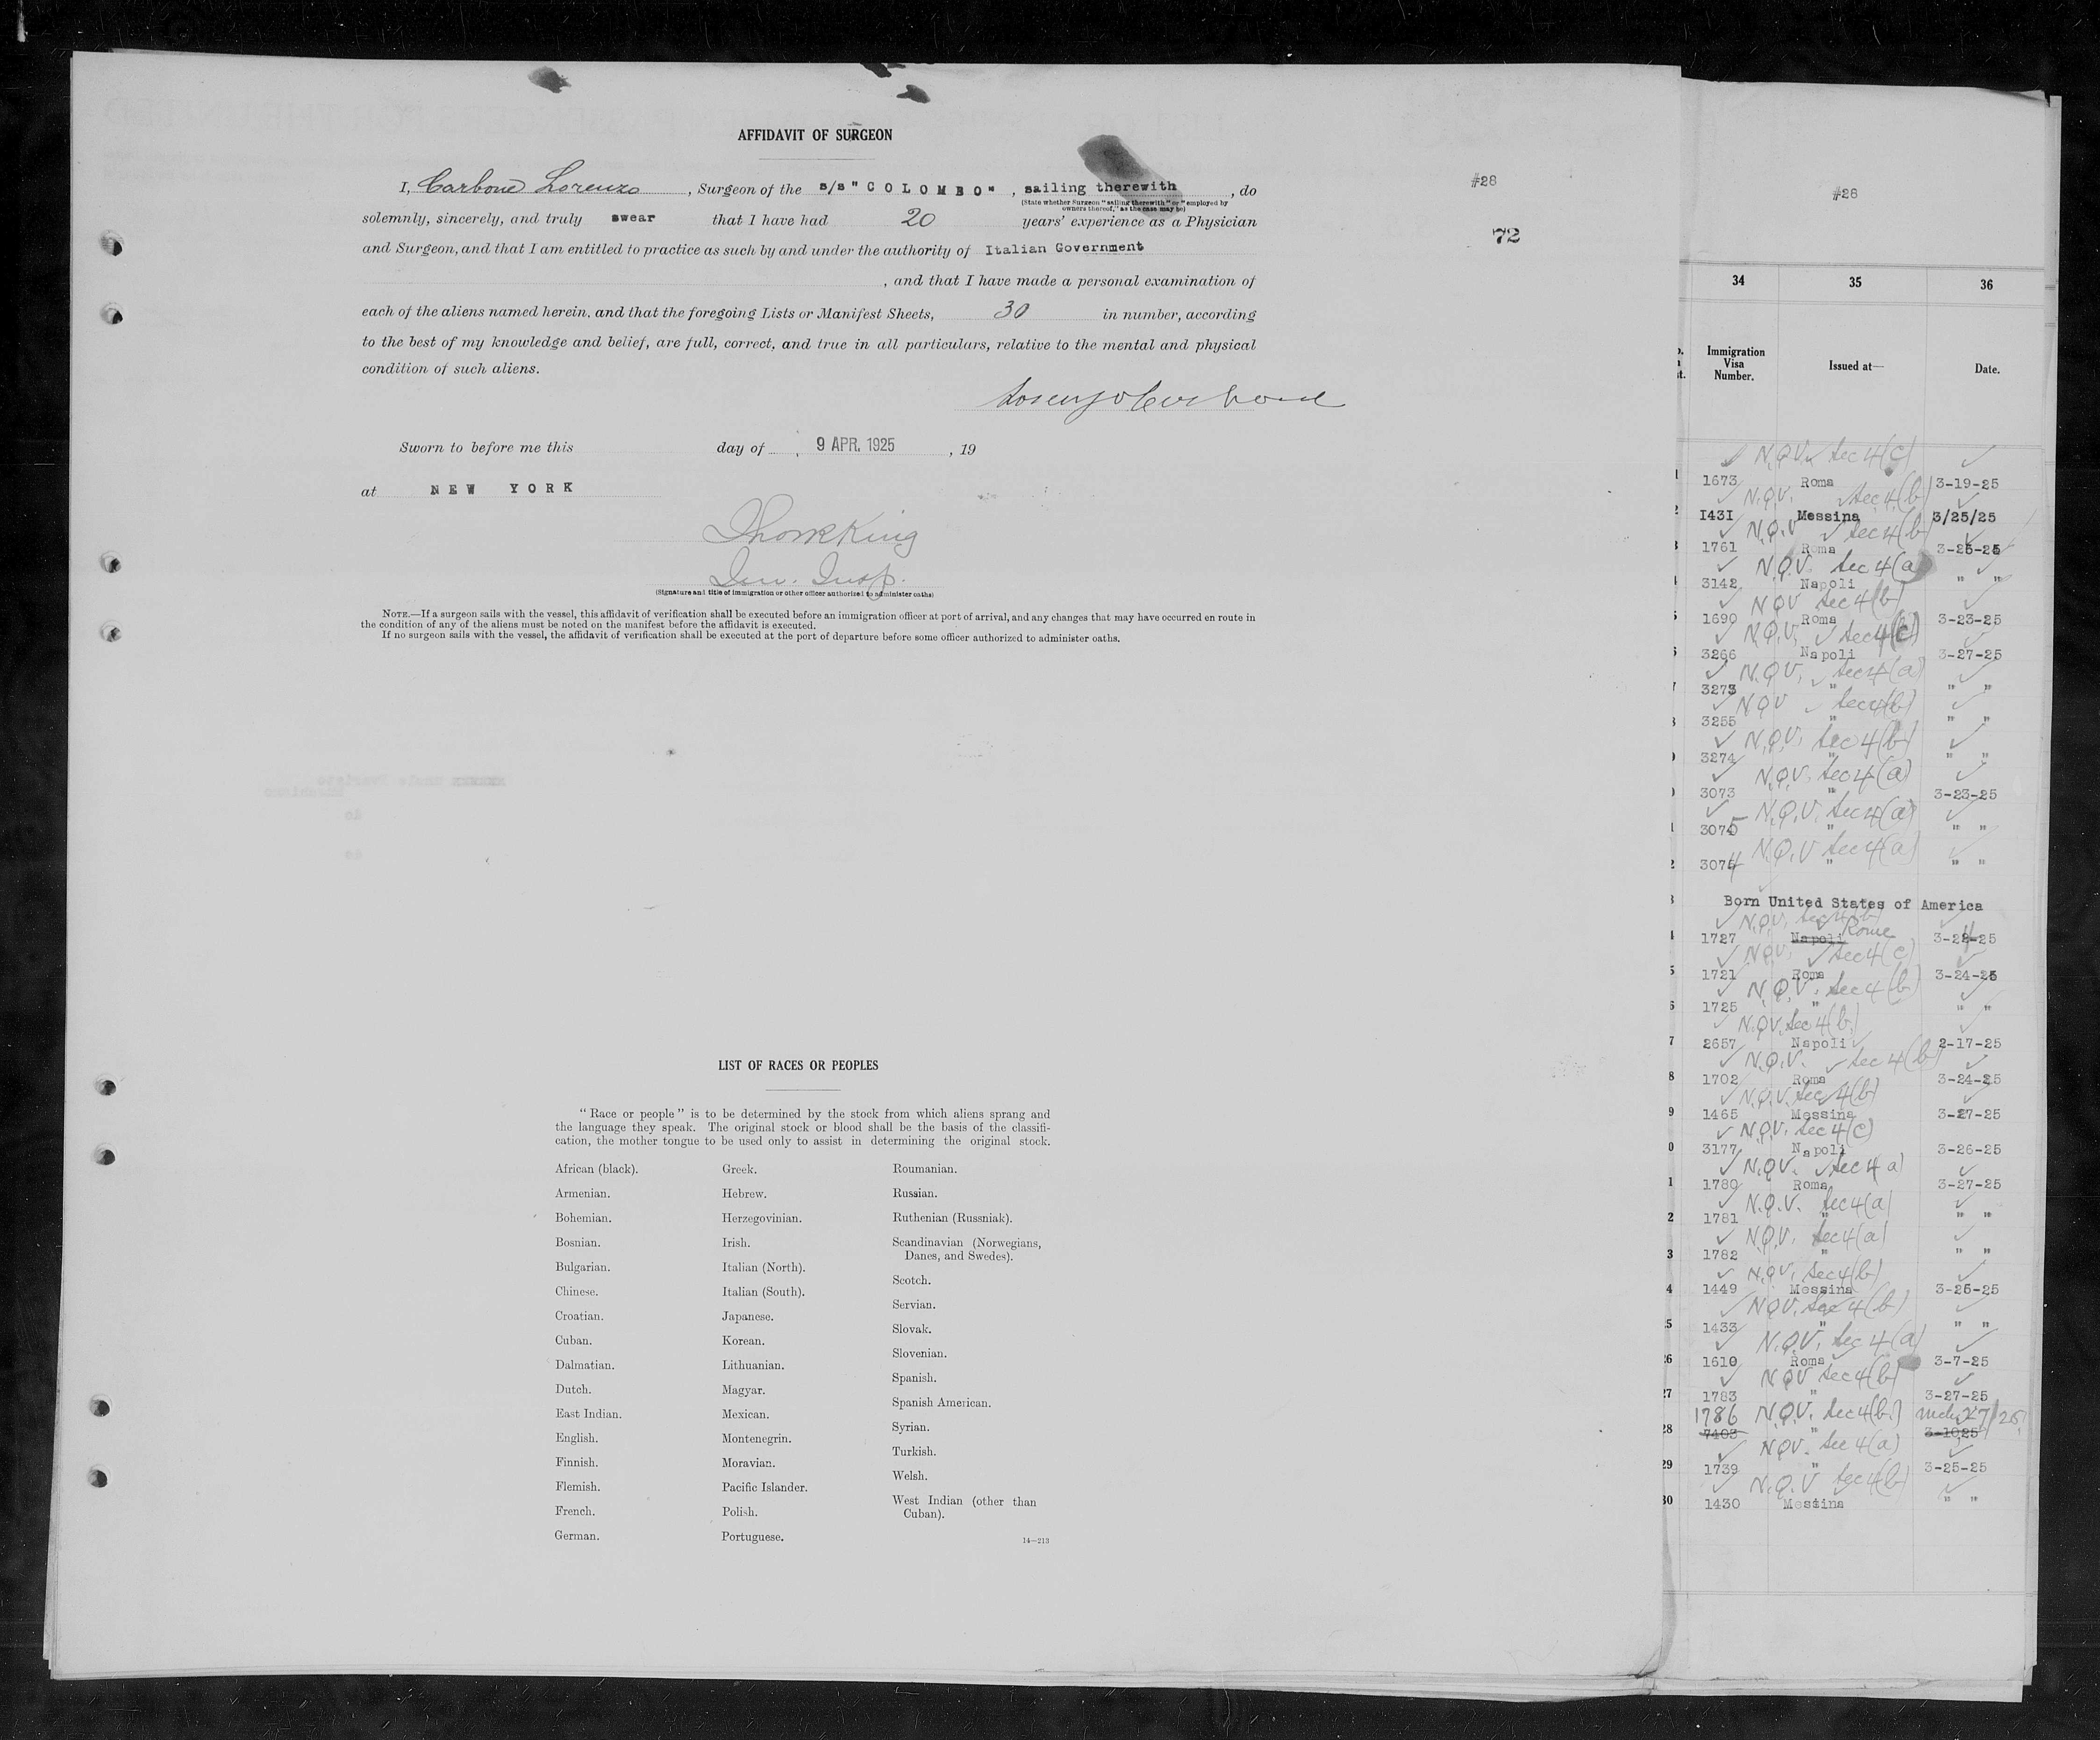 AFFIDAVIT OF SURGEON
I, Carbone Lorenzo, Surgeon of the s/s "COLOMBO", sailing therewith, do
(State whether Surgeon "sailing therewith" or "employed by
owners thereof," as the case may be)
solemnly, sincerely, and truly swear that I have had 20 years' experience as a Physician
and Surgeon, and that I am entitled to practice as such by and under the authority of Italian Government
, and that I have made a personal examination of
each of the aliens named herein, and that the foregoing Lists or Manifest Sheets, 30 in number, according
to the best of my knowledge and belief, are full, correct, and true in all particulars, relative to the mental and physical
condition of such aliens.
Lorenzo Carbone
Sworn to before me this day of 9 APR. 1925, 19
at NEW YORK
King
Im. Insp.
(Signature and title of immigration or other officer authorized to administer oaths)
NOTE.—If a surgeon sails with the vessel, this affidavit of verification shall be executed before an immigration officer at port of arrival, and any changes that may have occurred en route in
the condition of any of the aliens must be noted on the manifest before the affidavit is executed.
If no surgeon sails with the vessel, the affidavit of verification shall be executed at the port of departure before some officer authorized to administer oaths.
#28
72
LIST OF RACES OR PEOPLES
"Race or people" is to be determined by the stock from which aliens sprang and
the language they speak. The original stock or blood shall be the basis of the classifi-
cation, the mother tongue to be used only to assist in determining the original stock.
African (black).
Armenian.
Bohemian.
Bosnian.
Bulgarian.
Chinese.
Croatian.
Cuban.
Dalmatian.
Dutch.
East Indian.
English.
Finnish.
Flemish.
French.
German.
Greek.
Hebrew.
Herzegovinian.
Irish.
Italian (North).
Italian (South).
Japanese.
Korean.
Lithuanian.
Magyar.
Mexican.
Montenegrin.
Moravian.
Pacific Islander.
Polish.
Portuguese.
Roumanian.
Russian.
Ruthenian (Russniak).
Scandinavian (Norwegians,
Danes, and Swedes).
Scotch.
Servian.
Slovak.
Slovenian.
Spanish.
Spanish American.
Syrian.
Turkish.
Welsh.
West Indian (other than
Cuban).
14—213
#28
34 35 36
Immigration
Visa
Number.
Issued at—
Date.
N.Q.V. Sec 4(c)
1673 Roma 3-19-25
N.Q.V. Sec 4(b)
1431 Messina 3/25/25
N.Q.V Sec 4(b)
1761 Roma 3-25-25
N.Q.V. Sec 4(a)
3142 Napoli " "
N Q V Sec 4(b)
1690 Roma 3-23-25
N.Q.V. Sec 4(c)
3266 Napoli 3-27-25
N.Q.V. Sec 4(a)
3273 " " "
N Q V Sec 4(b)
3255 " " "
N.Q.V. Sec 4(b)
3274 " " "
N.Q.V. Sec 4(a)
3073 " 3-23-25
N.Q.V. Sec 4(a)
3075 " " "
N.Q.V Sec 4(a)
3074 " " "
Born United States of America
N.Q.V. Sec 4(b)
1727 Napoli Rome 3-24-25
N.Q.V. Sec 4(c)
1721 Roma 3-24-25
N.Q.V. Sec 4(b)
1725 " " "
N.Q.V. Sec 4(b)
2657 Napoli 2-17-25
N.Q.V. Sec 4(b)
1702 Roma 3-24-25
N.Q.V. Sec 4(b)
1465 Messina 3-27-25
N.Q.V. Sec 4(c)
3177 Napoli 3-26-25
N.Q.V. Sec 4 a)
1780 Roma 3-27-25
N.Q.V. Sec 4(a)
1781 " " "
N.Q.V. Sec 4(a)
1782 " " "
N.Q.V. Sec 4(b)
24 1449 Messina 3-25-25
N.Q.V. Sec 4(b)
1433 " " "
N.Q.V. Sec 4(a)
26 1610 Roma 3-7-25
N Q V Sec 4(b)
27 1783 " 3-27-25
1786 N.Q.V. Sec 4(b) Mch 27/25
28 7403 " 3-1025
N Q V. Sec 4(a)
29 1739 " 3-25-25
N.Q.V Sec 4(b)
30 1430 Messina " "